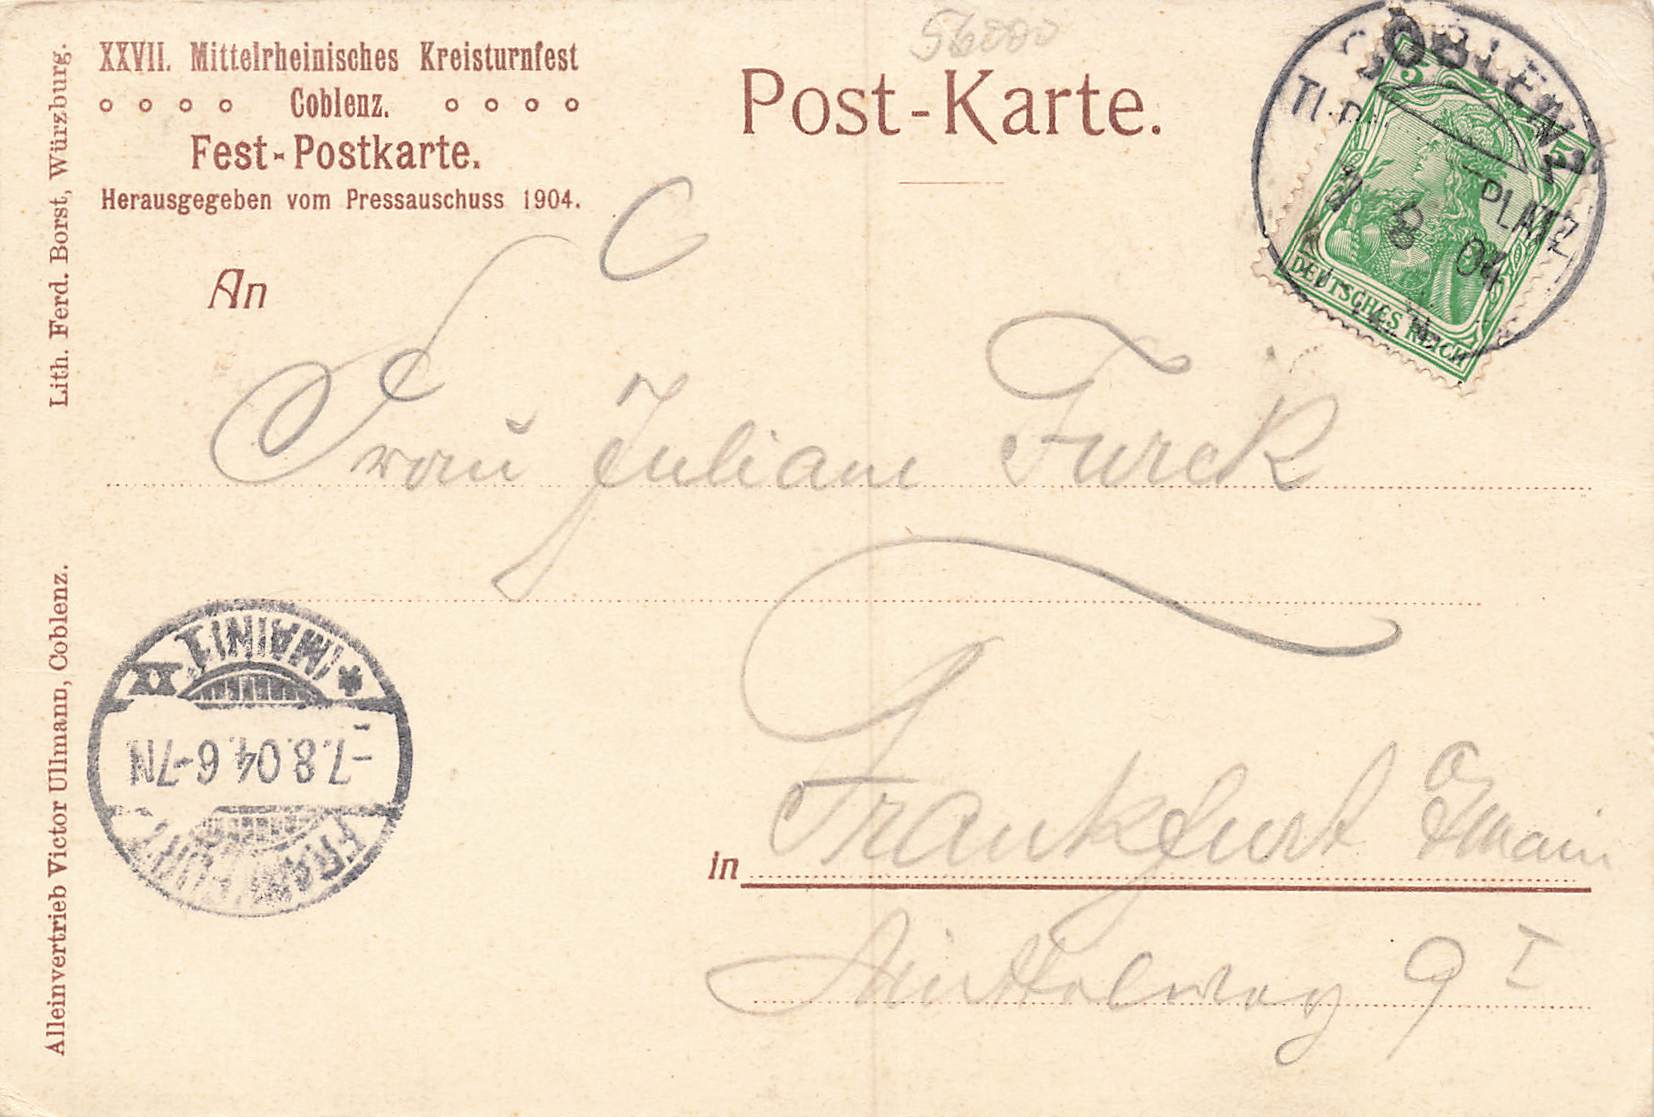 56000
XXVII. Mittelrheinisches Kreisturnfest
Coblenz.
Fest-Postkarte.
Herausgegeben vom Pressauschuss 1904.
Post-Karte.
COBLENZ
PLATZ
7 8 04
5 5
DEUTSCHES REICH
Lith. Ferd. Borst, Würzburg.
Alleinvertrieb Victor Ullmann, Coblenz.
An
Frau Juliane Furck
in Frankfurt a/Main
Mittelweg 9 I
FRANKFURT
-7.8.04.6-7N
(MAIN) 1 * XX